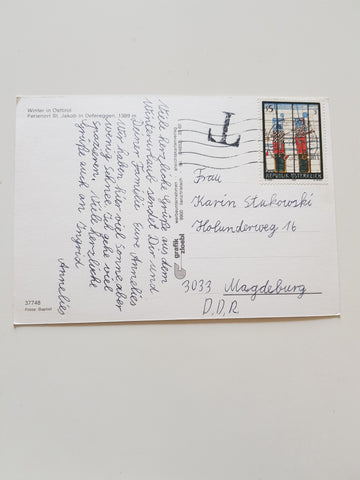 Winter in Osttirol
Ferienort St. Jakob in Defereggen, 1389 m
Viele herzliche Grüße aus dem
Winterurlaub sendet Dir und
Deiner Familie Eure Annelies
Wir haben hier viel Sonne aber
wenig Schnee. Ich gehe viel
spazieren. Viele herzliche
Grüße auch an Ingrid
Annelies
37748
grafik
zloebl
T
S5
REPUBLIK ÖSTERREICH
Frau
Karin Stukowski
Holunderweg 16
3033 Magdeburg
D.D.R.